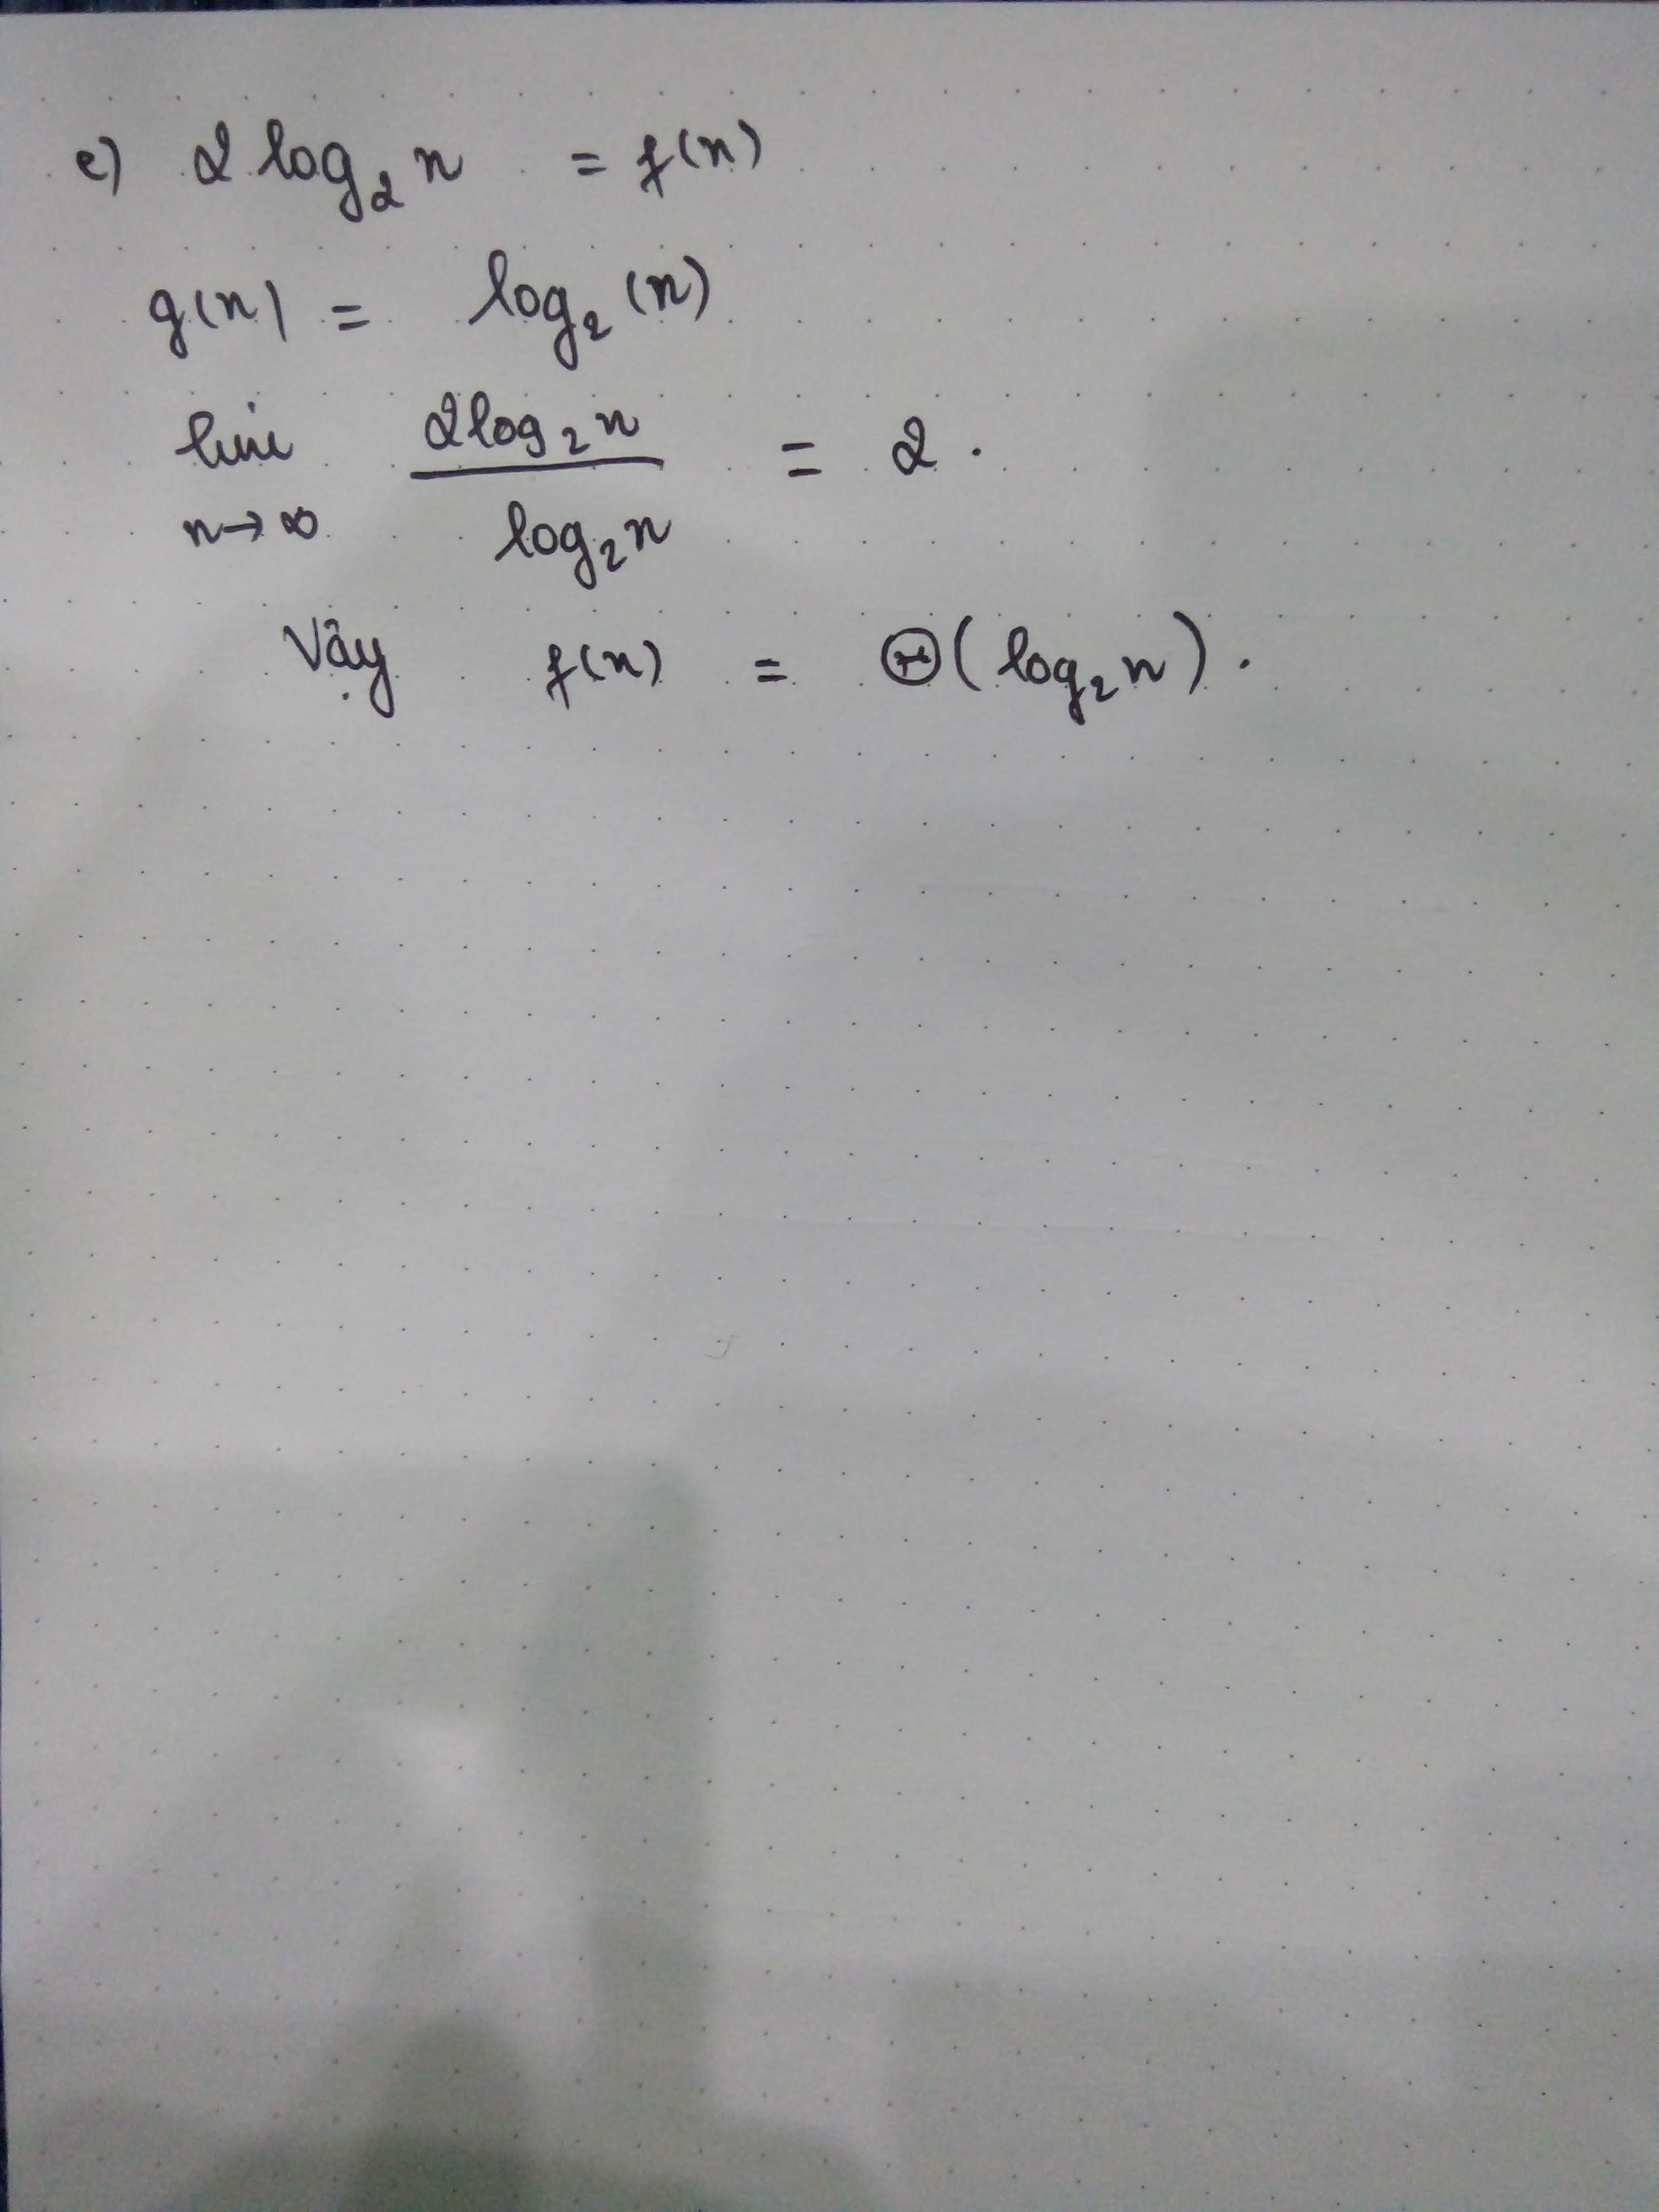 e) 2 log₂ n = f(n)
g(n) = log₂ (n)
lim n→∞ 2log₂n / log₂n = 2 .
Vậy f(n) = Θ( log₂n ) .